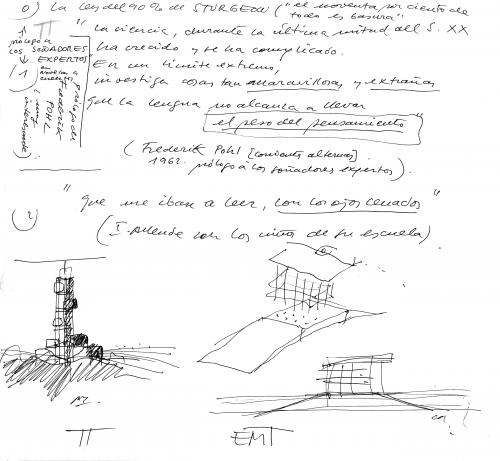 0) La ley del 90% de STURGEON ("el noventa por ciento de
todo es basura")
prólogo a
LOS SOÑADORES
EXPERTOS
1
Prólogo de
Frederik
POHL
(muy
interesante)
"La ciencia, durante la última mitad del S. XX
ha crecido y se ha complicado.
En un límite extremo,
investiga cosas tan maravillosas y extrañas
que la lengua no alcanza a llevar
el peso del pensamiento"
(Frederik Pohl [corriente alterna]
1962. prólogo a los soñadores expertos).
2
"que me iban a leer, con los ojos cerrados"
(I. Allende con los niños de su escuela)
TT
EMT